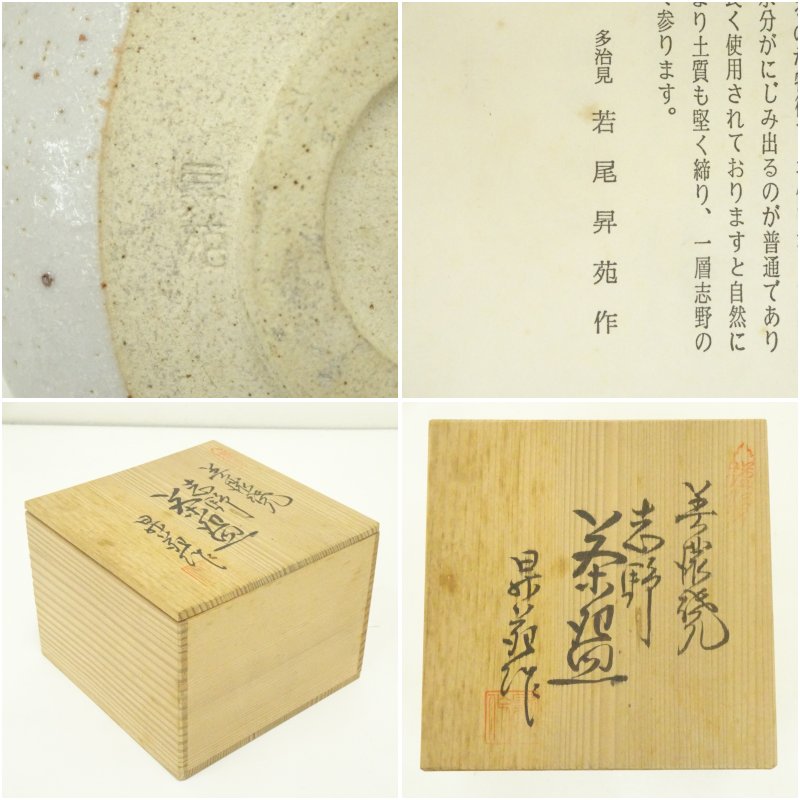 昇苑
水分がにじみ出るのが普通であり
良く使用されておりますと自然に
より土質も堅く締り、一層志野の
参ります。
多治見 若尾昇苑作
美濃焼
志野
茶盌
昇苑作
美濃焼
志野
茶盌
昇苑作